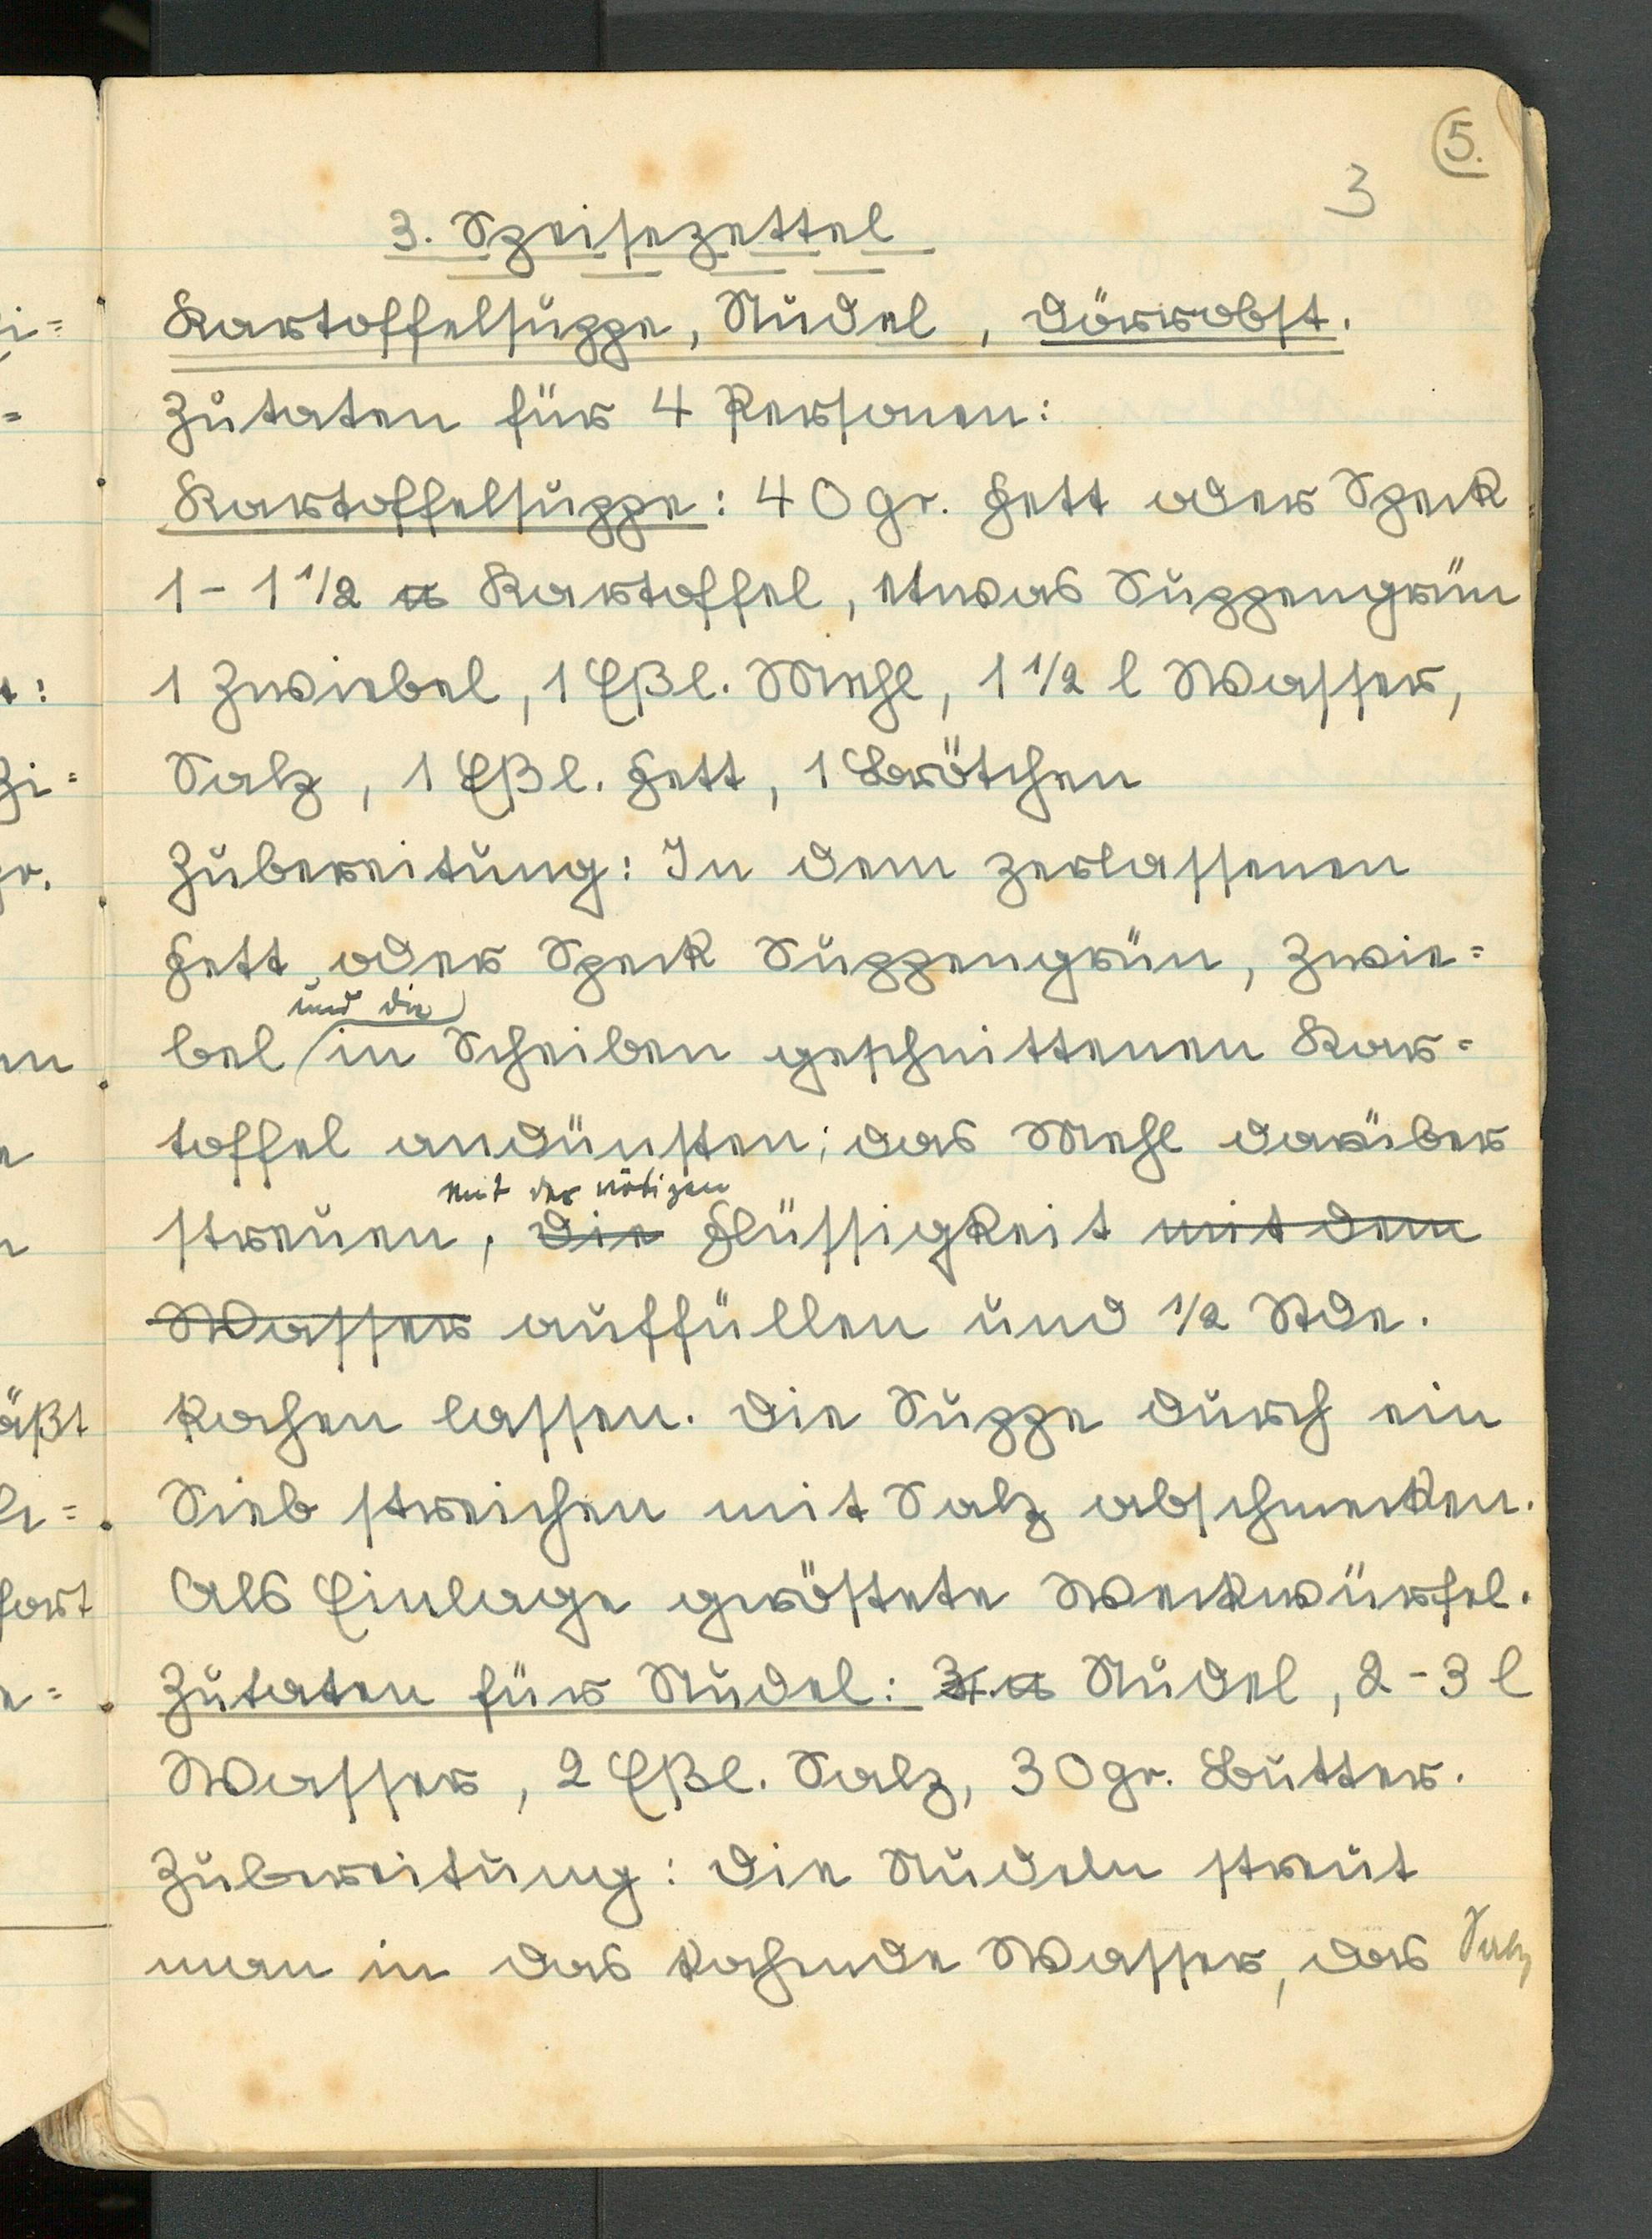 5.
3
3. Speisezettel
Kartoffelsuppe, Nudel, Dörrobst.
Zutaten für 4 Personen:
Kartoffelsuppe: 40 gr. Fett oder Speck
1 - 1 1/2 ℔ Kartoffel, etwas Suppengrün
1 Zwiebel, 1 Eßl. Mehl, 1 1/2 l Wasser,
Salz, 1 Eßl. Fett, 1 Brötchen
Zubereitung: In dem zerlassenen
Fett oder Speck Suppengrün, Zwie=
und die
bel in Scheiben geschnittenen Kar=
toffel andünsten; das Mehl darüber
mit der nötigen
streuen, die Flüssigkeit mit dem
Wasser auffüllen und 1/2 Stde.
kochen lassen. Die Suppe durch ein
Sieb streichen mit Salz abschmecken.
Als Einlage geröstete Weckwürfel.
Zutaten für Nudel: ℔ Nudel, 2 - 3 l
Wasser, 2 Eßl. Salz, 30 gr. Butter.
Zubereitung: Die Nudeln streut
man in das kochende Wasser, das Salz